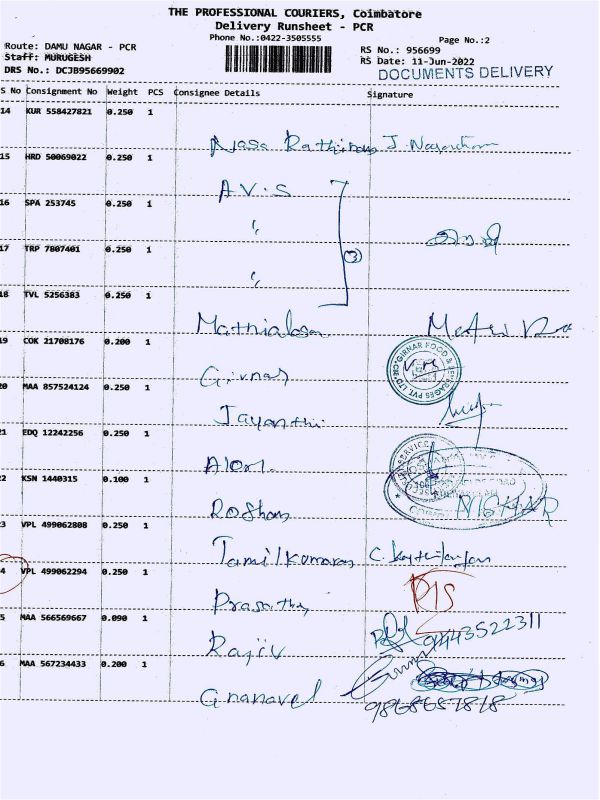 THE PROFESSIONAL COURIERS, Coimbatore
Delivery Runsheet - PCR
Phone No.:0422-3505555
Page No.:2
Route: DAMU NAGAR - PCR
RS No.: 956699
Staff: MURUGESH
RS Date: 11-Jun-2022
DRS No.: DCJB95669902
DOCUMENTS DELIVERY
S No Consignment No Weight PCS Consignee Details Signature
14 KUR 558427821 0.250 1
J.
15 HRD 50069022 0.250 1
A V. S
16 SPA 253745 0.250 1
"
17 TRP 7807401 0.250 1
"
③
18 TVL 5256383 0.250 1
Mathialagan
19 COK 21708176 0.200 1
Girnar
GIRNAR FOOD & BEVERAGES PVT. LTD.
20 MAA 857524124 0.250 1
Jayanthi
21 EDQ 12242256 0.250 1
SERVICE
22 KSN 1440315 0.100 1
Roshan NISHAR
23 VPL 499062808 0.250 1
Tamilkumaran
4 VPL 499062294 0.250 1
Prasanth
5 MAA 566569667 0.090 1
Rajiv 9443522311
6 MAA 567234433 0.200 1
Gnanavel
9868651818